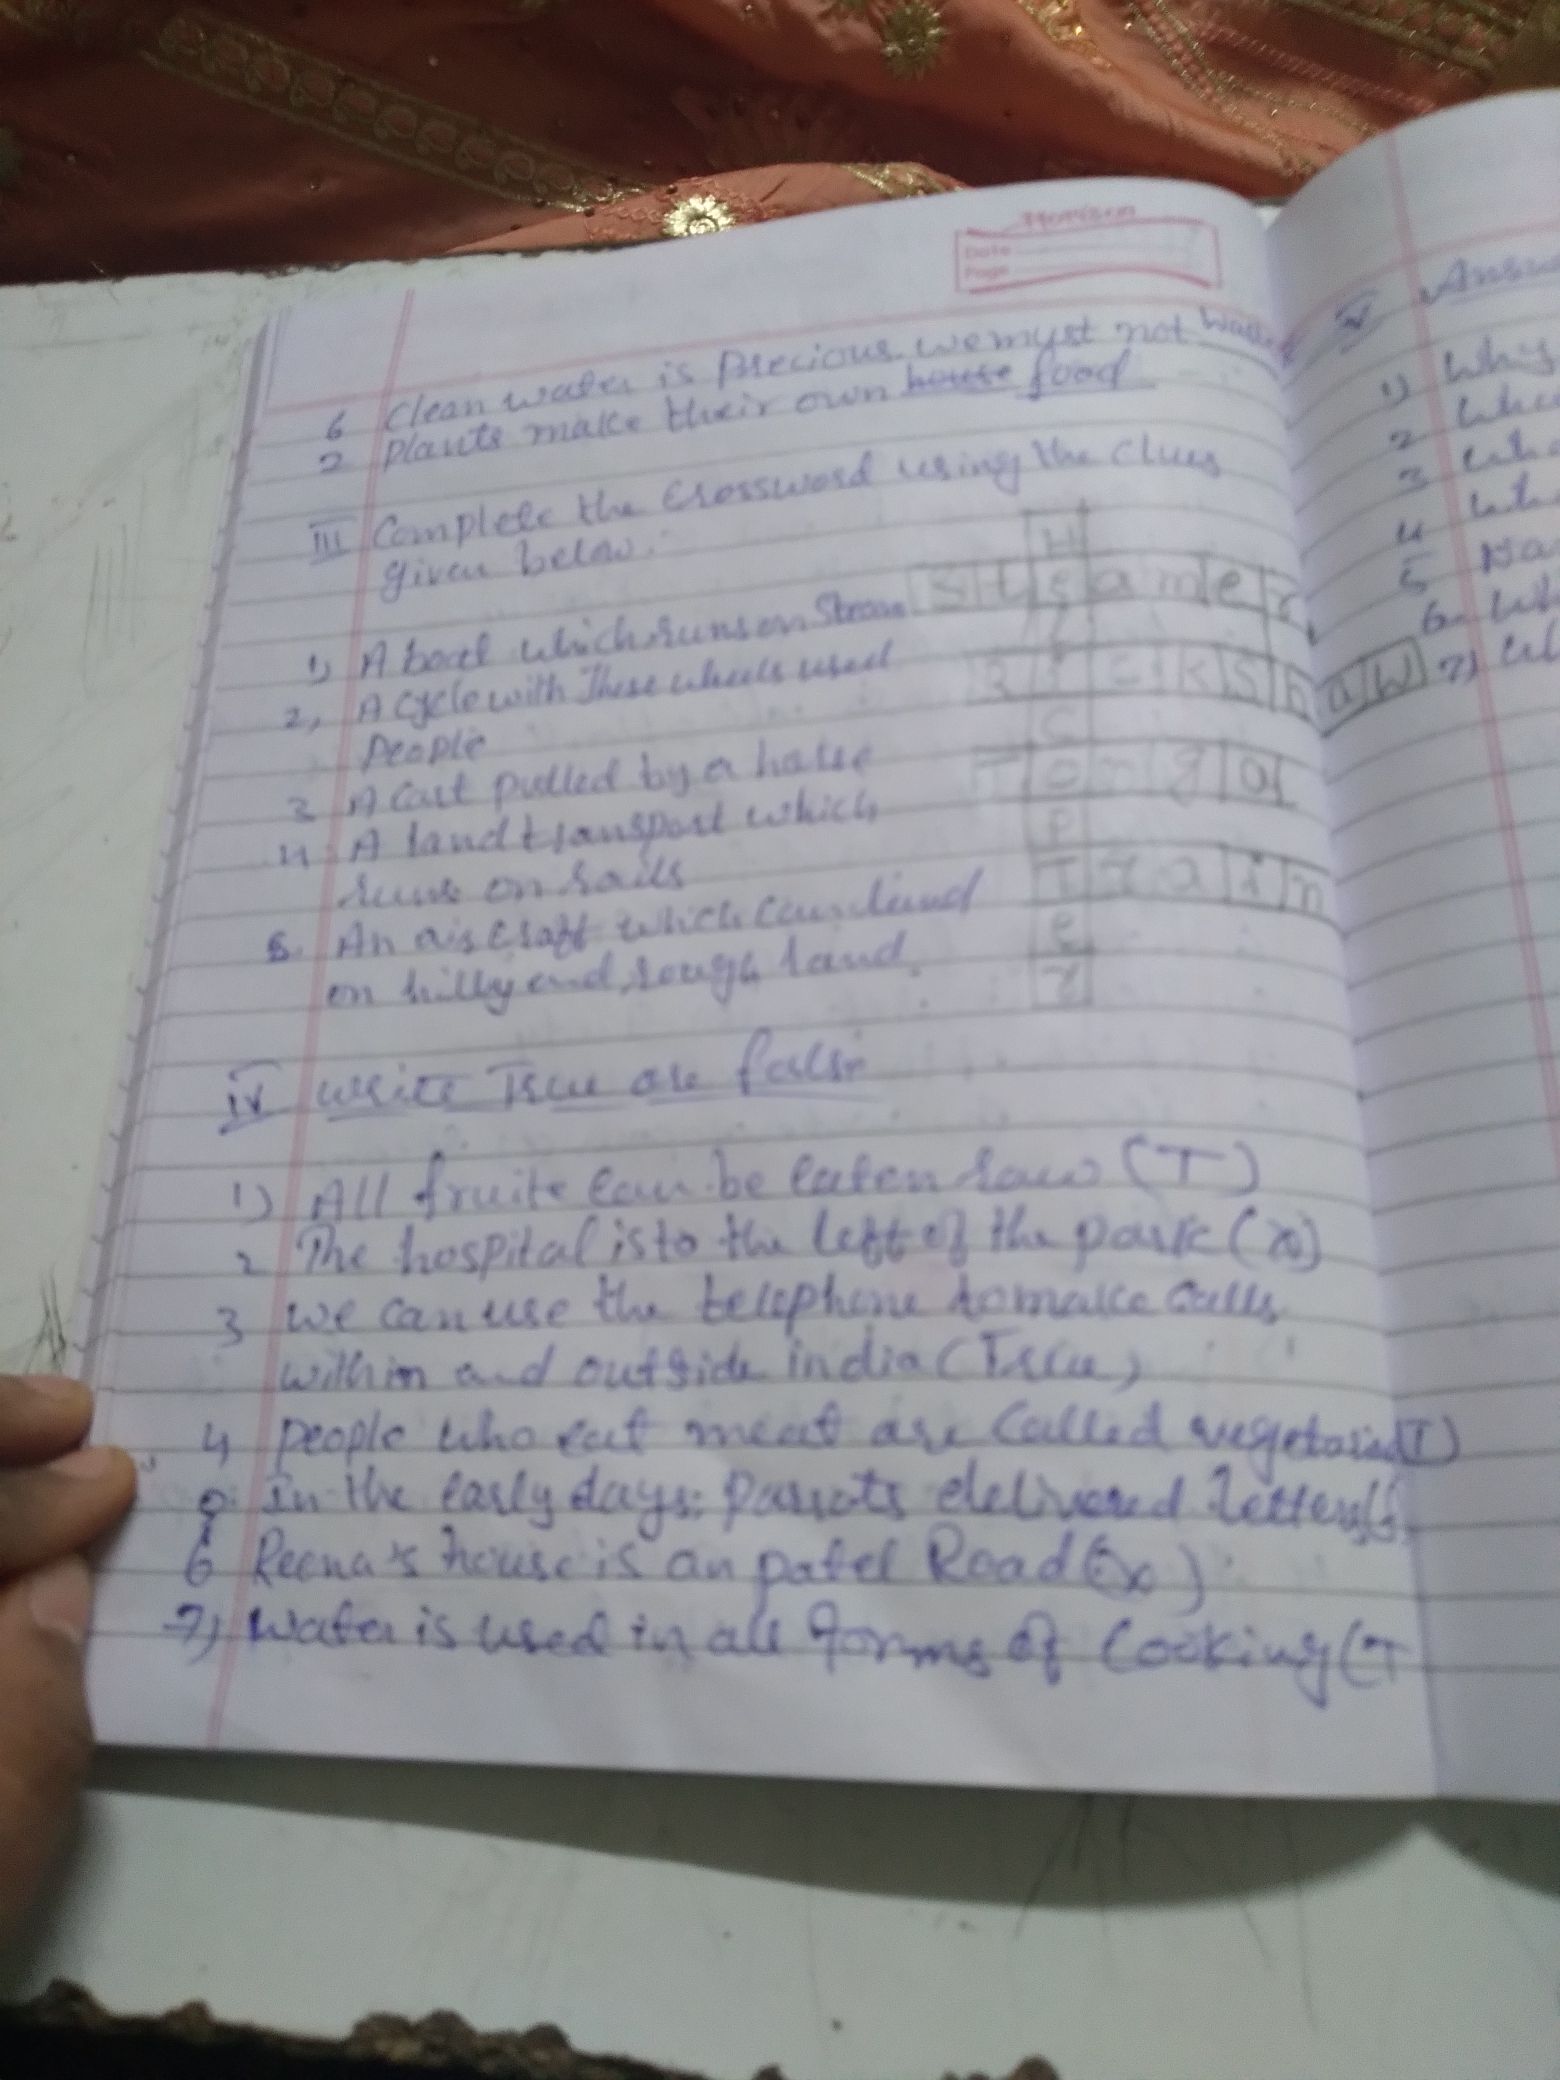 Date
Page
6 Clean water is precious we must not
7 Plants make their own house food
III Complete the Crossword using the Clues
given below:-
1) A boat which runs on Steam
2, A cycle with These wheels used
People
3 A Cart pulled by a horse
4 A land transport which
runs on rails
5. An aircraft which can land
on hilly and rough land.
H
Steamer
Rickshaw
C
Tonga
P
Train
e
r
IV write True are false
1) All fruite can be eaten raw (T)
2 The hospital is to the left of the park (x)
3 we can use the telephone to make calls
within and outside india (True)
4 people who eat meat are Called vegetarian (T)
In the early days: Parrots delivered letters
6 Reena's house is an patel Road (x)
7) Water is used in all forms of Cooking (T
V
1) Why
2
3
4
5
6
7)